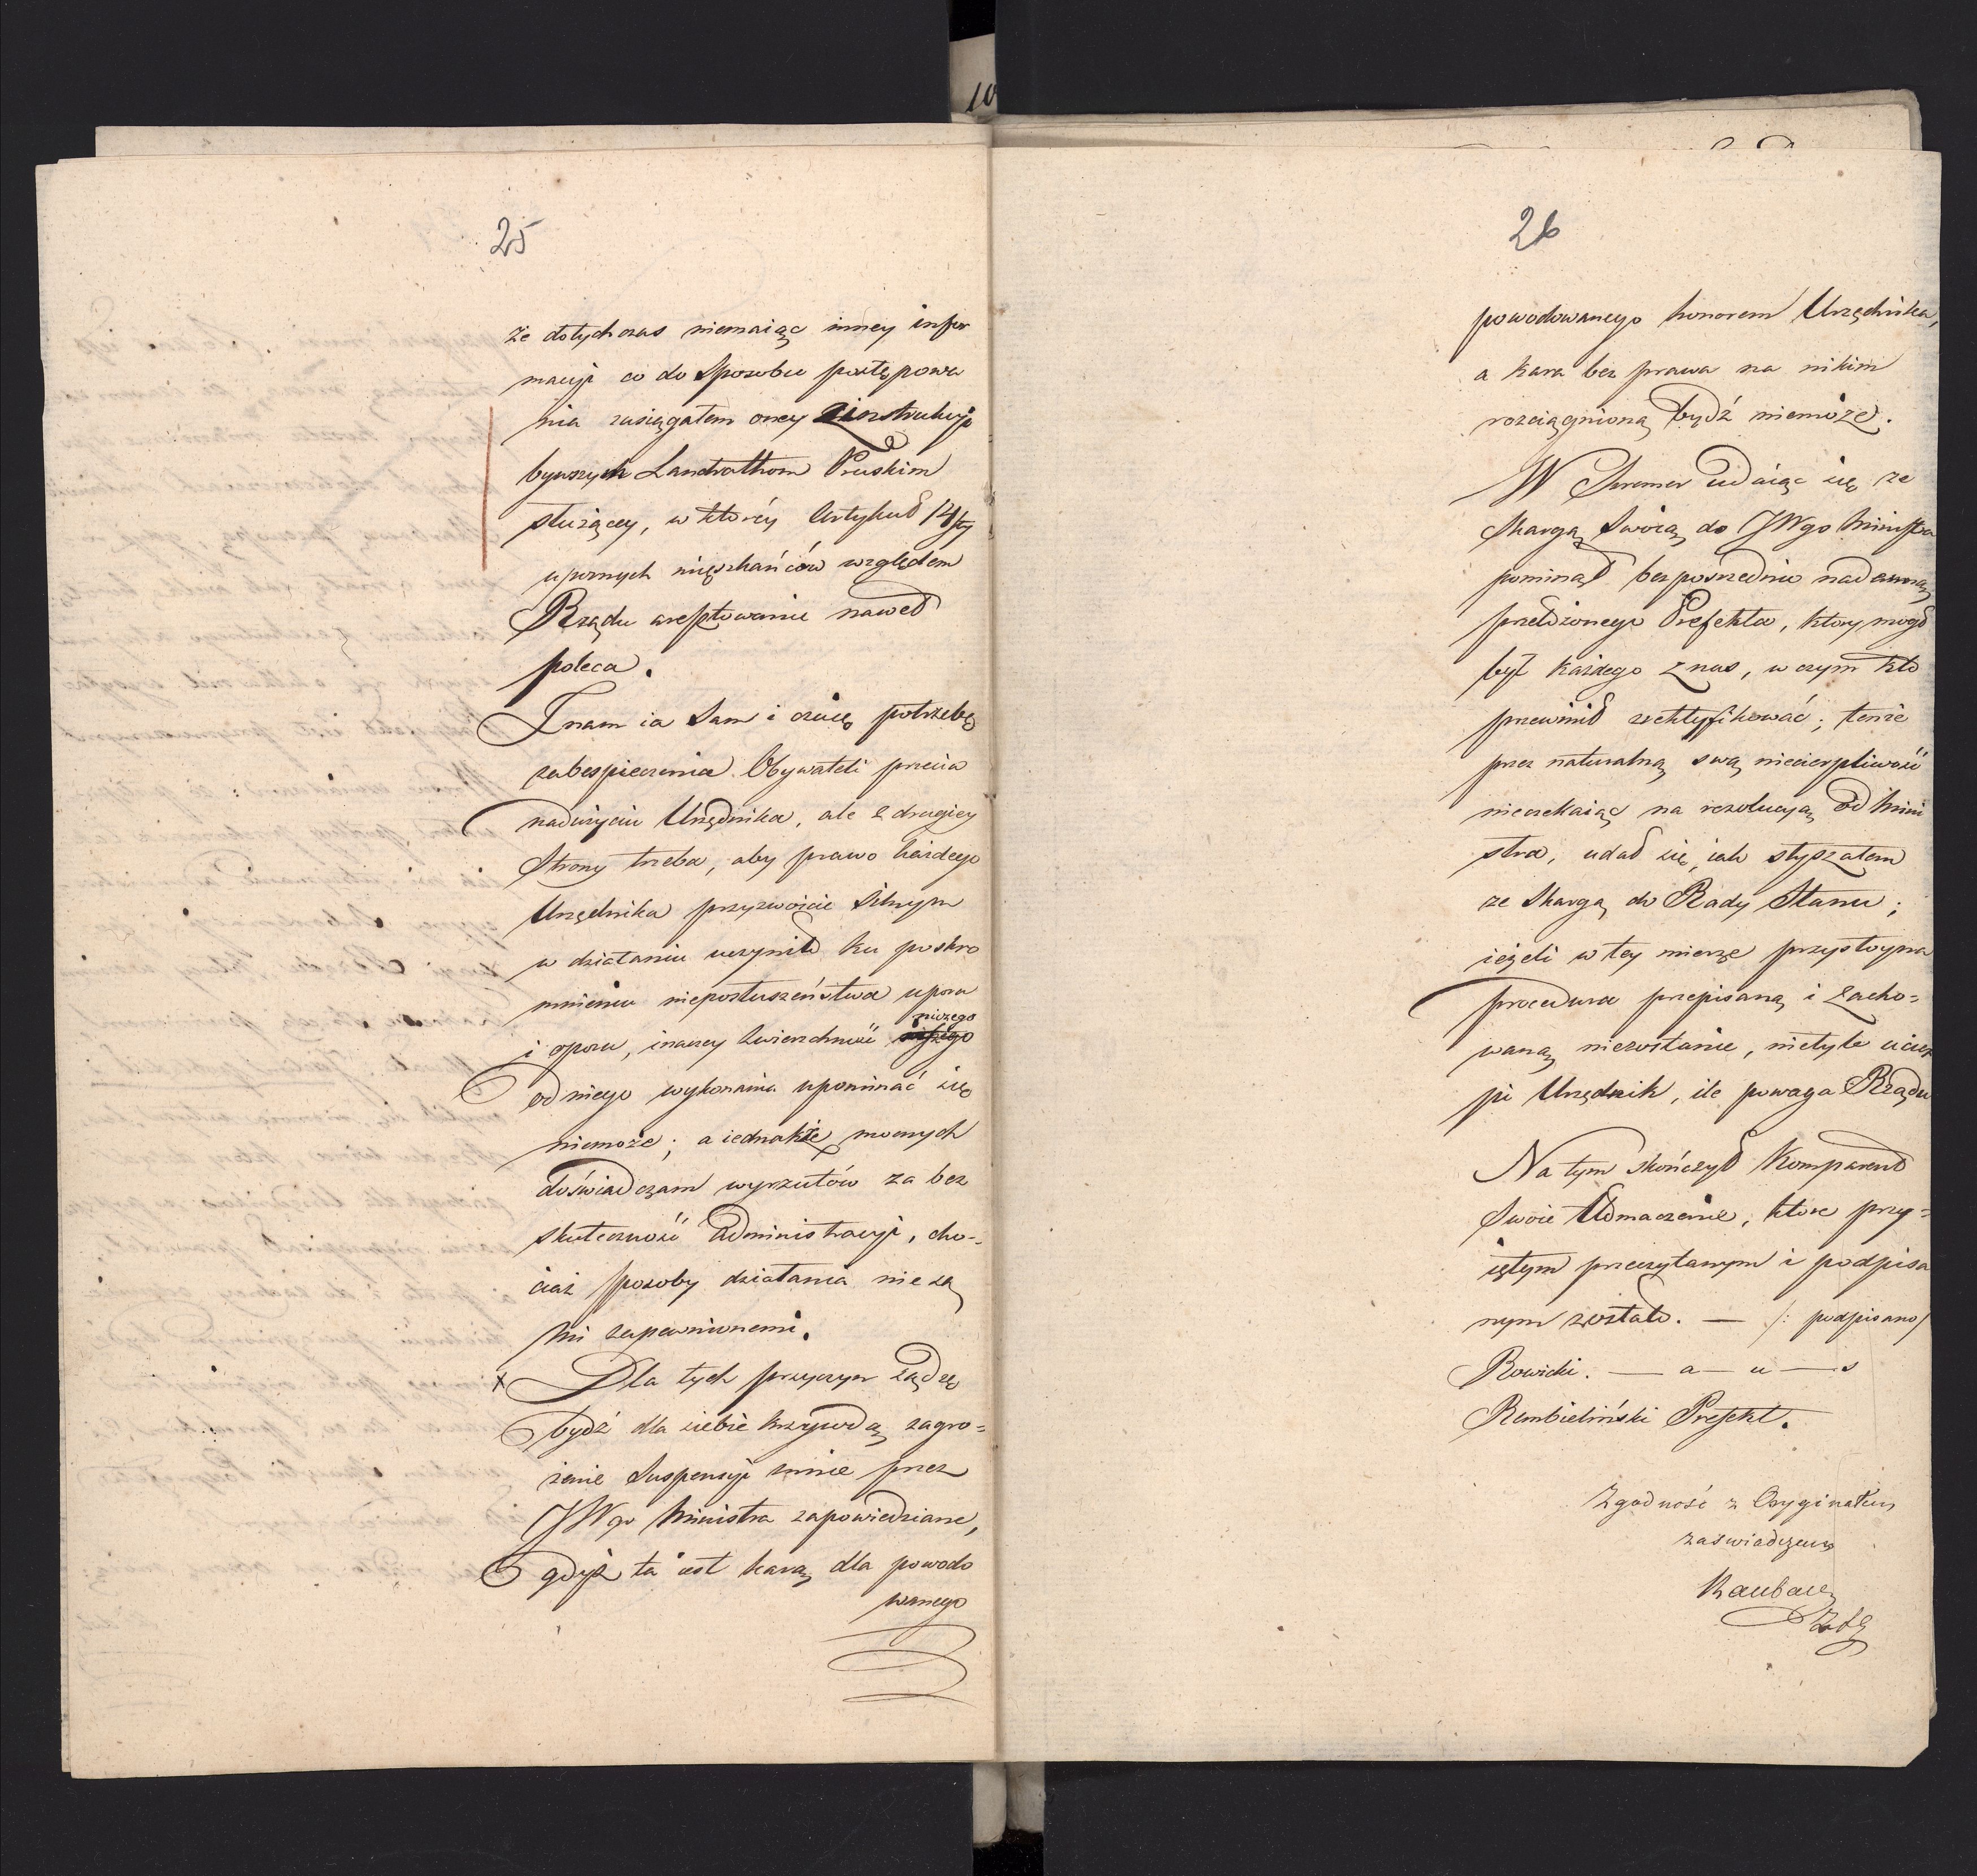 25
że dotychczas niemaiąc inney infor
macyi co do Sposobu postępowa
nia zasięgałem oney z instrukcyi
bywszych Landrathom Pruskim
służącey, w którey Artykuł 14ty
upornych mięszkańców względem
Rządu aresztowanie nawet
poleca.
Znam ia Sam i czuię potrzebę
zabespieczenia Obywateli przeciw
nadużyciu Urzędnika, ale z drugiey
Strony trzeba, aby prawo każdego
Urzędnika przyzwoicie Silnym
w działaniu uczyniło ku poskro
mnieniu nieposłuszeństwa uporu
niczego
i oporu, inaczey Zwierzchność
od niego wykonania upominać się
niemoże; a iednakże mocnych
doświadczam wyrzutów za bez
skuteczność Administracyi, cho-
ciaż sposoby działania nie są
mi zapewnionemi.
x Dla tych przyczyn Sądzę
bydź dla siebie krzywdą zagro-
żenie Suspensyi mnie przez
JWgo Ministra zapowiedziane,
gdyż ta iest karą dla powodo
wanego
26
powodowanego honorem Urzędnika,
a kara bez prawa na nikim
rozciągnioną bydź niemoże.
W Skremer udaiąc się ze
Skargą Swoią do JWgo Ministra
pominął bezpośrednio nad
przełożonego Prefekta, ktory mogł
był każdego z nas, w czym kto
przewinił zrektyfikować; tenże
przez naturalną swą niecierpliwość
nieczekaiąc na rezolucyą od Mini
stra, udał się iak słyszałem
ze Skargą do Rady Stanu;
ieżeli w tey mierze przystoyna
procedura przepisaną i zacho-
waną niezostanie, nietyle ucier
pi Urzędnik, ile powaga Rządu
Na tym skończył Komparent
Swoie tłomaczenie, ktore przy-
iętym przeczytanym i podpisa
nym zostało. — /: podpisano/
Rowicki. — a — u — s
Rembieliński Prefekt.
Zgodność z Oryginałem
zaświadczam